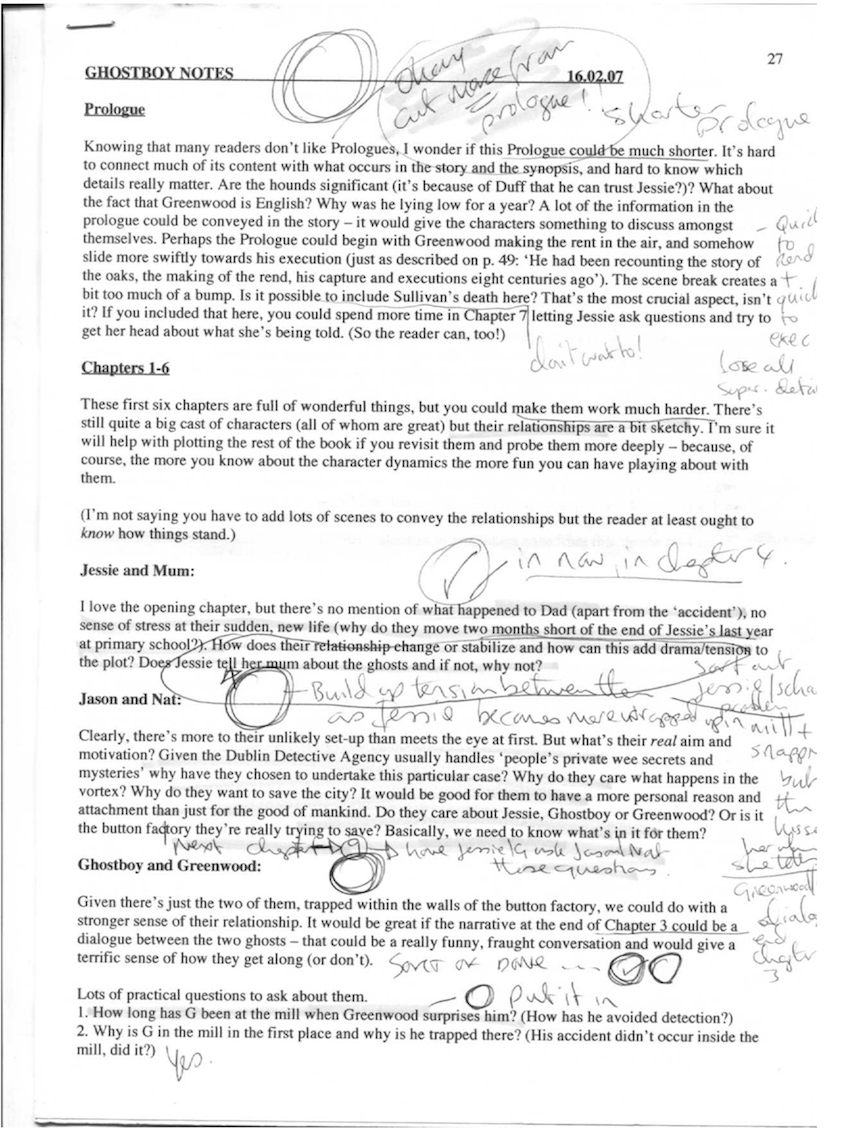 27
GHOSTBOY NOTES 16.02.07
okay
cut more from
prologue!
shorter
prologue
Prologue
Knowing that many readers don't like Prologues, I wonder if this Prologue could be much shorter. It's hard
to connect much of its content with what occurs in the story and the synopsis, and hard to know which
details really matter. Are the hounds significant (it's because of Duff that he can trust Jessie?)? What about
the fact that Greenwood is English? Why was he lying low for a year? A lot of the information in the
prologue could be conveyed in the story – it would give the characters something to discuss amongst
themselves. Perhaps the Prologue could begin with Greenwood making the rent in the air, and somehow
slide more swiftly towards his execution (just as described on p. 49: 'He had been recounting the story of
the oaks, the making of the rend, his capture and executions eight centuries ago'). The scene break creates a
bit too much of a bump. Is it possible to include Sullivan's death here? That's the most crucial aspect, isn't
it? If you included that here, you could spend more time in Chapter 7 letting Jessie ask questions and try to
get her head about what she's being told. (So the reader can, too!)
– Quic
to
rend
+
quic
to
exec
lose all
super. deta
don't want to!
Chapters 1-6
These first six chapters are full of wonderful things, but you could make them work much harder. There's
still quite a big cast of characters (all of whom are great) but their relationships are a bit sketchy. I'm sure it
will help with plotting the rest of the book if you revisit them and probe them more deeply – because, of
course, the more you know about the character dynamics the more fun you can have playing about with
them.
(I'm not saying you have to add lots of scenes to convey the relationships but the reader at least ought to
know how things stand.)
in now, in chapter 4.
Jessie and Mum:
I love the opening chapter, but there's no mention of what happened to Dad (apart from the 'accident'), no
sense of stress at their sudden, new life (why do they move two months short of the end of Jessie's last year
at primary school?). How does their relationship change or stabilize and how can this add drama/tension to
the plot? Does Jessie tell her mum about the ghosts and if not, why not?
– Build up tension between them
as Jessie becomes more wrapped up in mill +
sort out
Jessie/scho
problem
snapp
but
her mum
she tells
Jason and Nat:
Clearly, there's more to their unlikely set-up than meets the eye at first. But what's their real aim and
motivation? Given the Dublin Detective Agency usually handles 'people's private wee secrets and
mysteries' why have they chosen to undertake this particular case? Why do they care what happens in the
vortex? Why do they want to save the city? It would be good for them to have a more personal reason and
attachment than just for the good of mankind. Do they care about Jessie, Ghostboy or Greenwood? Or is it
the button factory they're really trying to save? Basically, we need to know what's in it for them?
Next chapter (9) have Jessie/G ask Jason/Nat
these questions.
Ghostboy and Greenwood:
Given there's just the two of them, trapped within the walls of the button factory, we could do with a
stronger sense of their relationship. It would be great if the narrative at the end of Chapter 3 could be a
dialogue between the two ghosts – that could be a really funny, fraught conversation and would give a
terrific sense of how they get along (or don't).
Sort of done ...
Greenwood
dialo
end
chapter
3
Lots of practical questions to ask about them.
– put it in
1. How long has G been at the mill when Greenwood surprises him? (How has he avoided detection?)
2. Why is G in the mill in the first place and why is he trapped there? (His accident didn't occur inside the
mill, did it?)
Yes.